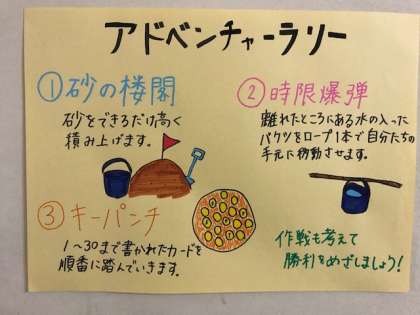 アドベンチャーラリー
①砂の楼閣
砂をできるだけ高く
積み上げます。
②時限爆弾
離れたところにある水の入った
バケツをロープ1本で自分たちの
手元に移動させます。
③キーパンチ
1〜30まで書かれたカードを
順番に踏んでいきます。
作戦も考えて
勝利をめざしましょう!